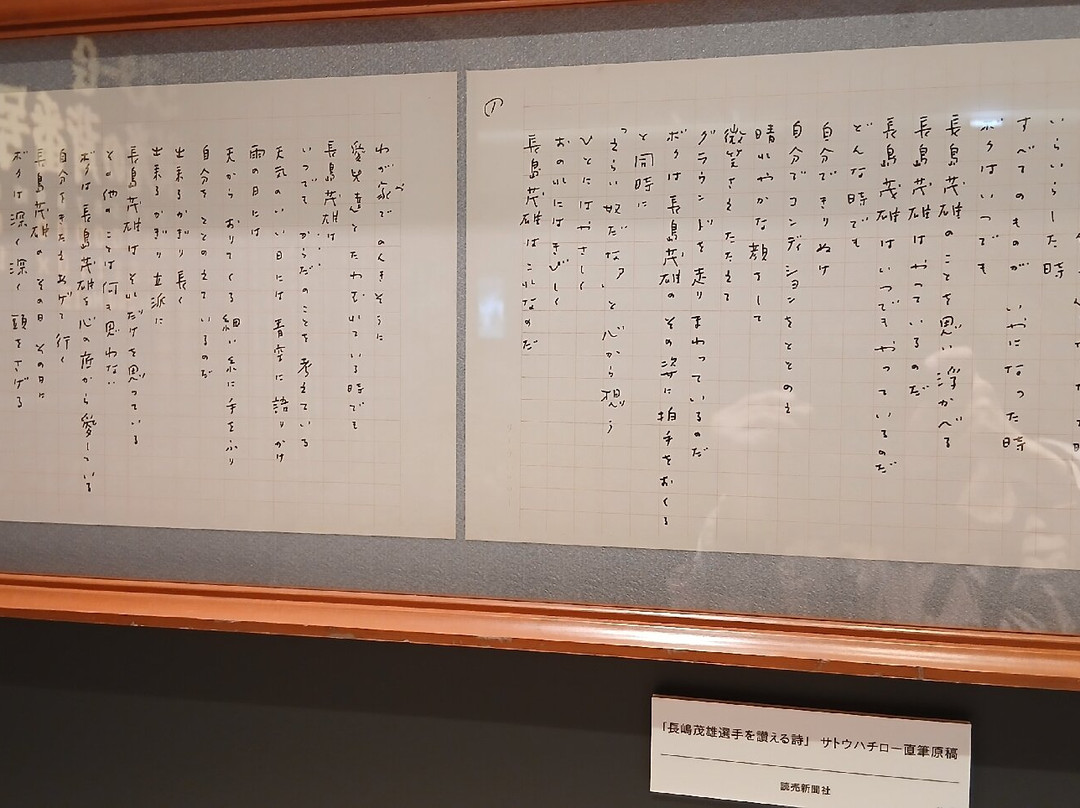 いらいらした時
すべてのものが いやになった時
ボクはいつでも
長島茂雄のことを思い浮かべる
長島茂雄はやっているのだ
長島茂雄はいつでもやっているのだ
どんな時でも
自分できりぬけ
自分でコンディションをととのえ
晴れやかな顔をして
微笑さえたたえて
グラウンドを走りまわっているのだ
ボクは長島茂雄のその姿に拍手をおくる
と同時に
「えらい奴だなァ」と心から想う
ひとにはやさしく
おのれにはきびしく
長島茂雄はこれなのだ
わが家で のんきそうに
愛児達とたわむれている時でも
長島茂雄は
いつでも からだのことを 考えている
天気のいい日には 青空に語りかけ
雨の日には
天から おりてくる 細い糸に手をふり
自分を ととのえて いるのだ
出来るかぎり 長く
出来るかぎり 立派に
長島茂雄は それだけを 思っている
その他のことは 何も思わない
ボクは 長島茂雄を 心の底から 愛している
自分をきたえあげて 行く
長島茂雄の その日 その日に
ボクは 深く 深く 頭をさげる
「長嶋茂雄選手を讃える詩」 サトウハチロー直筆原稿
読売新聞社